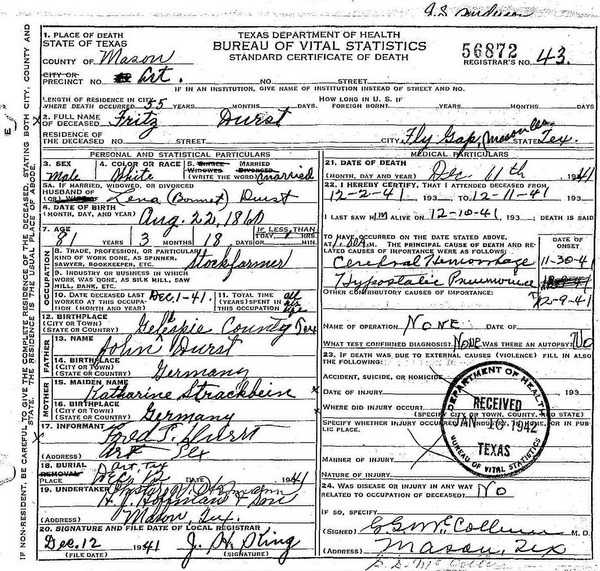 TEXAS DEPARTMENT OF HEALTH
BUREAU OF VITAL STATISTICS
STANDARD CERTIFICATE OF DEATH
56872
REGISTRAR'S NO. 43
1. PLACE OF DEATH
STATE OF TEXAS
COUNTY OF Mason
CITY OR
PRECINCT NO. Art. NO. STREET
IF IN AN INSTITUTION, GIVE NAME OF INSTITUTION INSTEAD OF STREET AND NO.
LENGTH OF RESIDENCE IN CITY WHERE DEATH OCCURRED 55 YEARS MONTHS DAYS
HOW LONG IN U. S. IF FOREIGN BORN? YEARS MONTHS DAYS
2. FULL NAME OF DECEASED Fritz Durst
RESIDENCE OF THE DECEASED NO. STREET CITY Fly Gap, Mason Co STATE Tex.
PERSONAL AND STATISTICAL PARTICULARS
3. SEX Male
4. COLOR OR RACE White
5. SINGLE WIDOWED MARRIED DIVORCED (WRITE THE WORD) married
5A. IF MARRIED, WIDOWED, OR DIVORCED
HUSBAND OF (OR) WIFE OF Lena (Bonnet) Durst
6. DATE OF BIRTH (MONTH, DAY, AND YEAR) Aug. 22, 1860
7. AGE 81 YEARS 3 MONTHS 18 DAYS IF LESS THAN 1 DAY
OCCUPATION
8. TRADE, PROFESSION, OR PARTICULAR KIND OF WORK DONE, AS SPINNER, SAWYER, BOOKKEEPER, ETC. Stockfarmer
9. INDUSTRY OR BUSINESS IN WHICH WORK WAS DONE, AS SILK MILL, SAW MILL, BANK, ETC.
10. DATE DECEASED LAST WORKED AT THIS OCCUPATION (MONTH AND YEAR) Dec. 1-41.
11. TOTAL TIME (YEARS) SPENT IN THIS OCCUPATION all his life
12. BIRTHPLACE (CITY OR TOWN) (STATE OR COUNTY) Gelespie County Tex
FATHER
13. NAME John Durst
14. BIRTHPLACE (CITY OR TOWN) (STATE OR COUNTY) Germany
MOTHER
15. MAIDEN NAME Katharine Strackbein
16. BIRTHPLACE (CITY OR TOWN) (STATE OR COUNTY) Germany
17. INFORMANT Durst
(ADDRESS) Art Tex
18. BURIAL REMOVAL
PLACE Art, Tex
DATE Dec. 12 1941
19. UNDERTAKER
(ADDRESS) Mason Tex.
20. SIGNATURE AND FILE DATE OF LOCAL REGISTRAR
Dec. 12 1941 (FILE DATE) (SIGNATURE)
MEDICAL PARTICULARS
21. DATE OF DEATH (MONTH, DAY AND YEAR) Dec 11th 1941
22. I HEREBY CERTIFY, THAT I ATTENDED DECEASED FROM
12-2-41 193 TO 12-11-41 193
I LAST SAW HIM ALIVE ON 12-10-41 DEATH IS SAID
TO HAVE OCCURRED ON THE DATE STATED ABOVE, AT M. THE PRINCIPAL CAUSE OF DEATH AND RELATED CAUSES OF IMPORTANCE WERE AS FOLLOWS:
DATE OF ONSET
Cerebral Hemorrhage 11-30-41
Hypostatic Pneumonia
OTHER CONTRIBUTORY CAUSES OF IMPORTANCE: 12-9-41
NAME OF OPERATION None DATE OF 193
WHAT TEST CONFIRMED DIAGNOSIS? None WAS THERE AN AUTOPSY? No
23. IF DEATH WAS DUE TO EXTERNAL CAUSES (VIOLENCE) FILL IN ALSO THE FOLLOWING:
ACCIDENT, SUICIDE, OR HOMICIDE
DATE OF INJURY 193
WHERE DID INJURY OCCUR?
(SPECIFY CITY OR TOWN, COUNTY, AND STATE)
MANNER OF INJURY
NATURE OF INJURY
DEPARTMENT OF HEALTH
RECEIVED
JAN 10 1942
TEXAS
BUREAU OF VITAL STATISTICS
24. WAS DISEASE OR INJURY IN ANY WAY RELATED TO OCCUPATION OF DECEASED? No
(SIGNED) M. D.
(ADDRESS) Mason, Tex